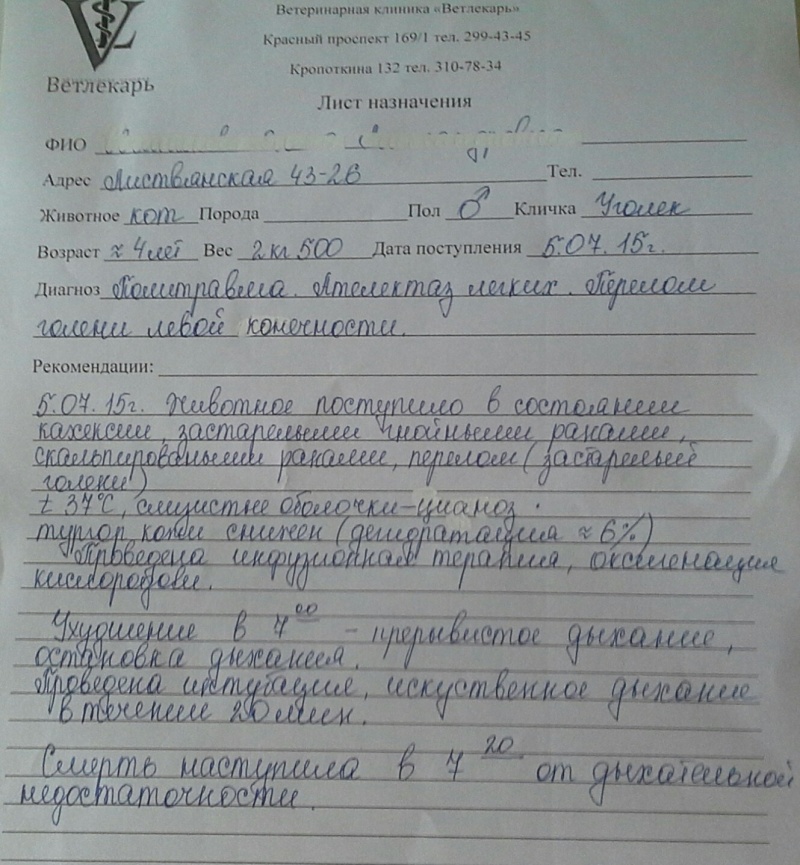 Ветеринарная клиника «Ветлекарь»
Красный проспект 169/1 тел. 299-43-45
Кропоткина 132 тел. 310-78-34
Ветлекарь
Лист назначения
ФИО
Адрес Листвянская 43-26 Тел.
Животное кот Порода Пол ♂ Кличка Уголек
Возраст ≈ 4 лет Вес 2 кг 500 Дата поступления 5.07.15г.
Диагноз Политравма. Ателектаз легких. Перелом
голени левой конечности.
Рекомендации:
5.07.15г. Животное поступило в состоянии
кахексии, застарелыми гнойными ранами,
скальпированными ранами, перелом (застарелый
голени)
t 37°C, слизистые оболочки-цианоз.
тургор кожи снижен (дегидратация ≈ 6%)
Проведена инфузионная терапия, оксигенация
кислородом.
Ухудшение в 7 00 - прерывистое дыхание,
остановка дыхания.
Проведена интубация, искуственное дыхание
в течении 20 мин.
Смерть наступила в 7 20 от дыхательной
недостаточности.